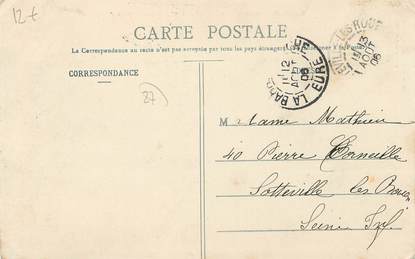 12€
CARTE POSTALE
La Correspondance au recto n'est pas acceptée par tous les pays étrangers
CORRESPONDANCE
27
12
AOUT
06
EURE
13
AOUT
06
Madame Mathieu
40 Pierre Corneille
Sotteville les Rouen
Seine Inf.